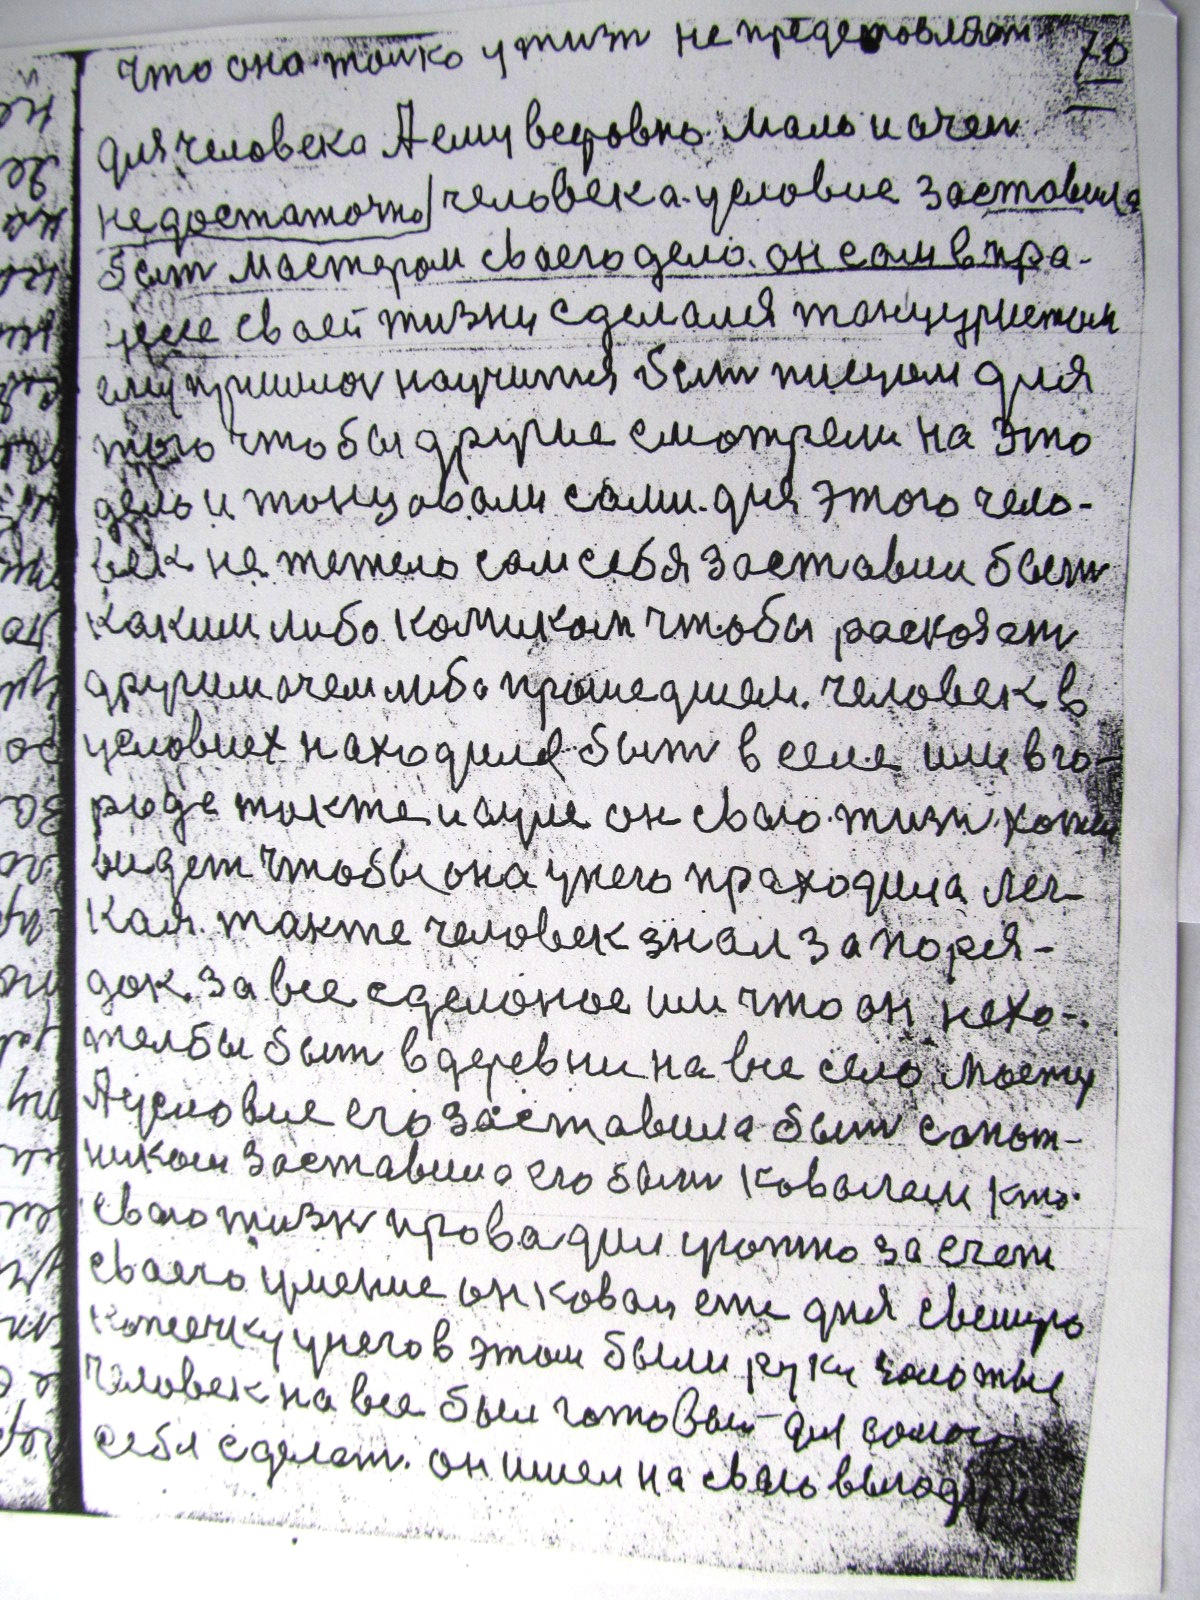 что она только у жизн не предстовляет 70
для человека А ему всеровно мало и очен
недостаточно человека условие заставила
быт мастером своего дело. он сам в пра-
цесе своей жизни сделался
ему пришлос научится быт писцом для
того чтобы другие смотрели на это
дело и тонцовали сами. для этого чело-
век не жежело сам себя заставил быт
каким либо комиком чтобы раскозат
другим о чем либо прошедшем. человек в
условиех находился быт в селе или в го-
роде токже и ауле он сваю жизн хоже
видет чтобы она унего праходила лег-
кая. также человек знал за поря-
док. За все сделоное или что он нехо-
тел бы быт в деревни на все село
А условие его заставила быт сапож-
ником заставила его быт ковалем кто
сваю жизн проводил у за счет
своего умение он ковал для свежую
копеечку у него в этом были руки золотые
человек на все был готовый для
себя сделат. он имел на сваю выгоду